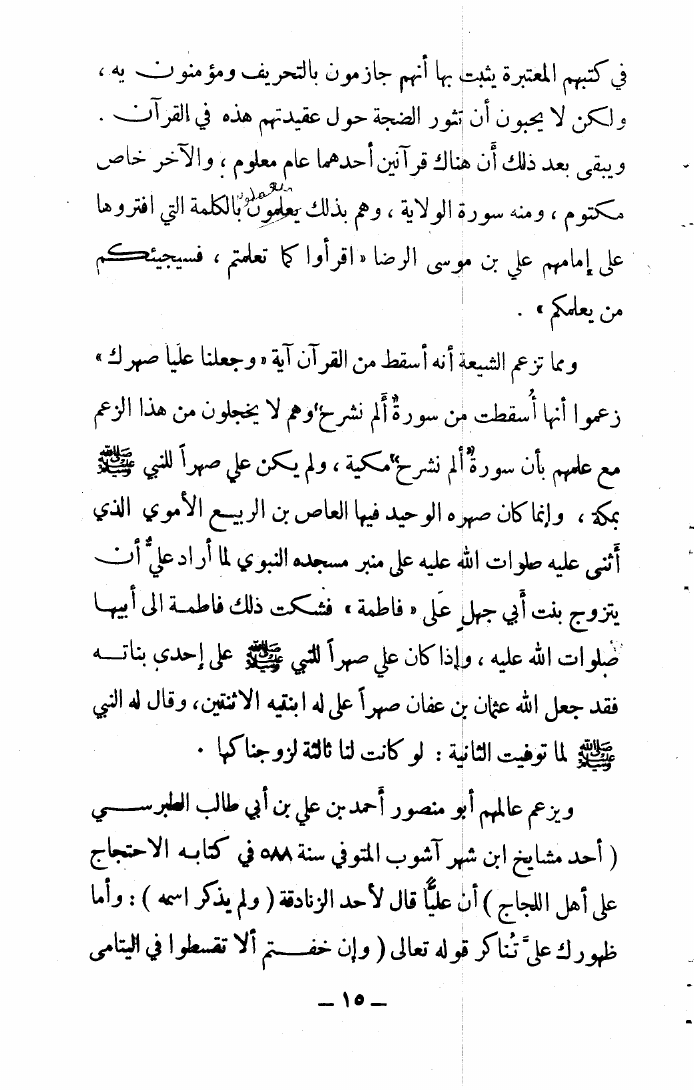 في كتبهم المعتبرة يثبت بها أنهم جازمون بالتحريف ومؤمنون به ،
ولكن لا يحبون أن تثور الضجة حول عقيدتهم هذه في القرآن .
ويبقى بعد ذلك أن هناك قرآنين أحدهما عام معلوم ، والآخر خاص
مكتوم ، ومنه سورة الولاية ، وهم بذلك يعلمون يعملون بالكلمة التي افتروها
على إمامهم علي بن موسى الرضا « اقرأوا كما تعلمتم ، فسيجيئكم
من يعلمكم » .
ومما تزعم الشيعة أنه أسقط من القرآن آية « وجعلنا علياً صهرك »
زعموا أنها أُسقطت من سورة " ألم نشرح " وهم لا يخجلون من هذا الزعم
مع علمهم بأن سورة " ألم نشرح " مكية ، ولم يكن علي صهراً للنبي ﷺ
بمكة ، وإنما كان صهره الوحيد فيها العاص بن الربيع الأموي الذي
أثنى عليه صلوات الله عليه على منبر مسجده النبوي لما أراد عليٌّ أن
يتزوج بنت أبي جهلٍ عَلى « فاطمة » فشكت ذلك فاطمة الى أبيها
صلوات الله عليه ، وإذا كان علي صهراً للنبي ﷺ على إحدى بناته
فقد جعل الله عثمان بن عفان صهراً على له ابنتيه الاثنتين ، وقال له النبي
ﷺ لما توفيت الثانية : لو كانت لنا ثالثة لزوجناكها .
ويزعم عالمهم أبو منصور أحمد بن علي بن أبي طالب الطبرسي
( أحد مشايخ ابن شهر آشوب المتوفي سنة ٥٨٨ في كتابه الاحتجاج
على أهل اللجاج ) أن عليًّا قال لأحد الزنادقة ( ولم يذكر اسمه ) : وأما
ظهورك علىَّ تُناكر قوله تعالى ( وإن خفتم ألا تقسطوا في اليتامى
ــ ١٥ ــ